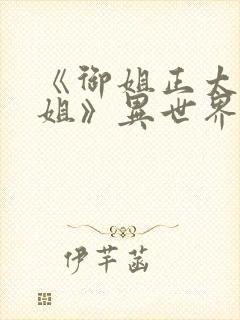 《御姐正大
姐》異世界
伊芊菡